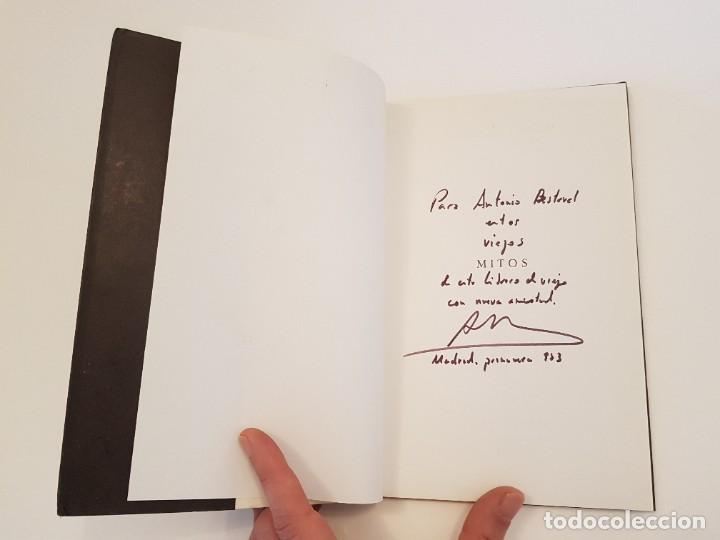 Para Antonio
estos
viejos
MITOS
de este librero el viejo
con nueva amistad.
Madrid, primavera
todocoleccion.net